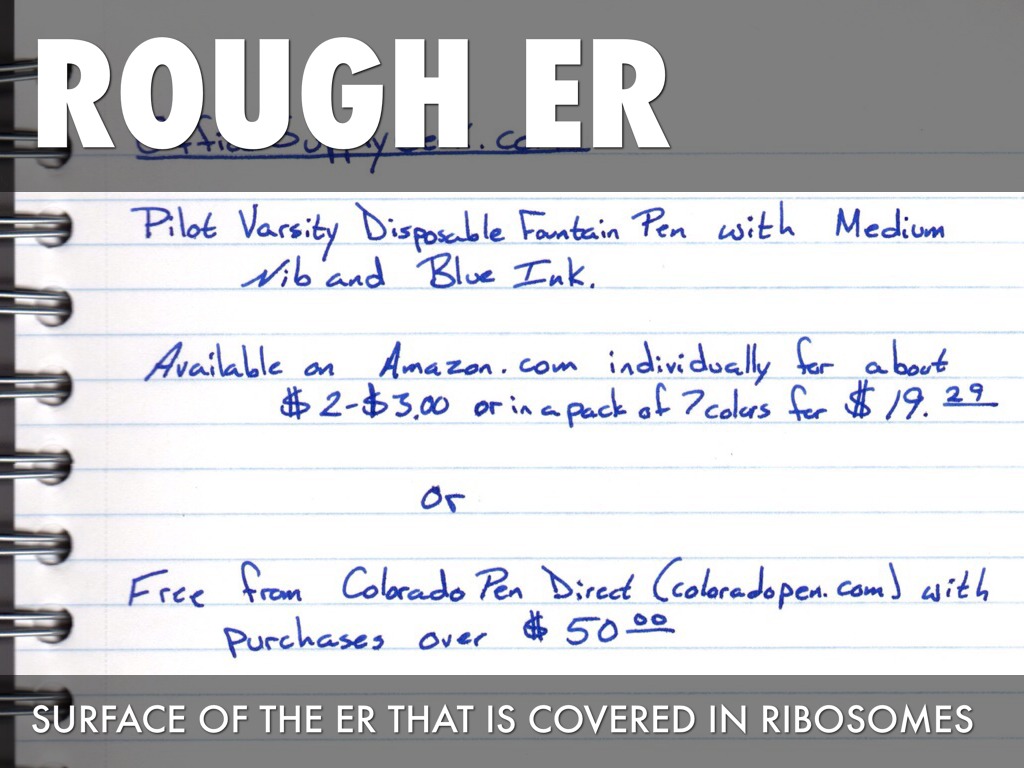 ROUGH ER
Pilot Varsity Disposable Fountain Pen with Medium
Nib and Blue Ink.
Available on Amazon.com individually for about
$2-$3.00 or in a pack of 7 colors for $19.29
or
Free from Colorado Pen Direct (coloradopen.com) with
purchases over $50.00
SURFACE OF THE ER THAT IS COVERED IN RIBOSOMES